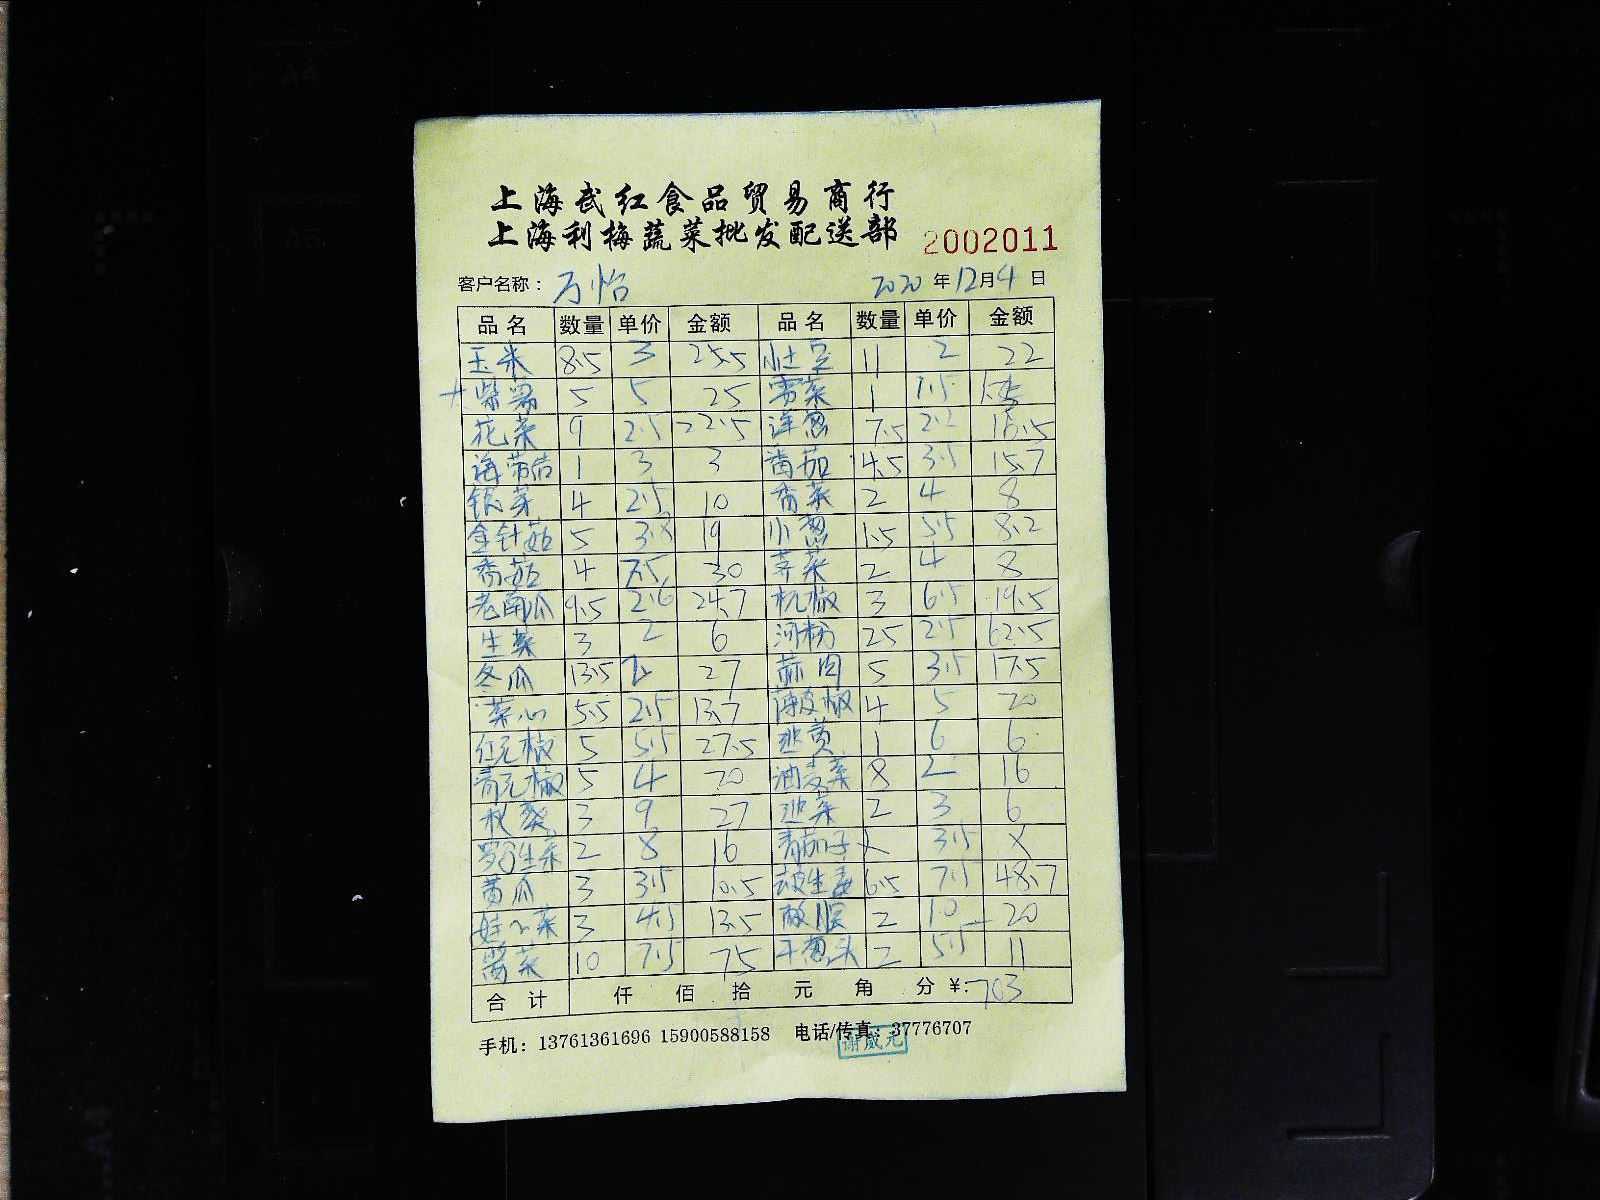 上海武红食品贸易商行
上海利梅蔬菜批发配送部 2002011
客户名称: 万怡 2020 年 12 月 4 日
品名 数量 单价 金额 品名 数量 单价 金额
玉米 8.5 3 25.5 小土豆 11 2 22
紫薯 5 5 25 雪菜 1 7.5
花菜 9 2.5 22.5 洋葱 7.5 2.2 16.5
海带结 1 3 3 番茄 4.5 3.5 15.7
银芽 4 2.5 10 香菜 2 4 8
金针菇 5 3.8 19 小葱 1.5 5.5 8.2
香菇 4 7.5 30 芹菜 2 4 8
老南瓜 9.5 2.6 24.7 杭椒 3 6.5 19.5
生菜 3 2 6 河粉 25 2.5 62.5
冬瓜 13.5 2 27 蒜肉 5 3.5 17.5
菜心 5.5 2.5 13.7 薄皮椒 4 5 20
红元椒 5 5.5 27.5 韭黄 1 6 6
青元椒 5 4 20 油麦菜 8 2 16
秋葵 3 9 27 韭菜 2 3 6
罗马生菜 2 8 16 青茄子 X 3.5 X
黄瓜 3 3.5 10.5 去皮生姜 6.5 7.5 48.7
娃娃菜 3 4.5 13.5 2 10 20
酱菜 10 7.5 75 干葱头 2 5.5 11
合计 仟 佰 拾 元 角 分 ¥: 703
手机: 13761361696 15900588158 电话/传真: 37776707
谢威元